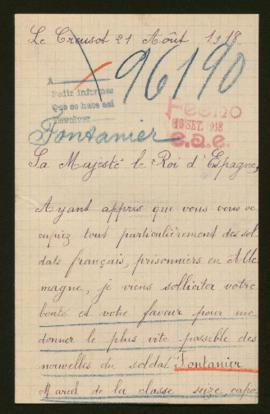 Le Creusot 21 Août 1918
96190
A
Pedir informes
Que se haga así
Devolver
Fecho
10 SET. 1918
e.a.e.
Fontanier
Sa Majesté le Roi d'Espagne,
Ayant appris que vous vous oc
cupiez tout particulièrement des sol
dats français, prisonniers en Alle
magne, je viens solliciter votre
bonté et votre faveur pour me
donner le plus vite possible des
nouvelles du soldat Fontanier
de la classe seize, capo